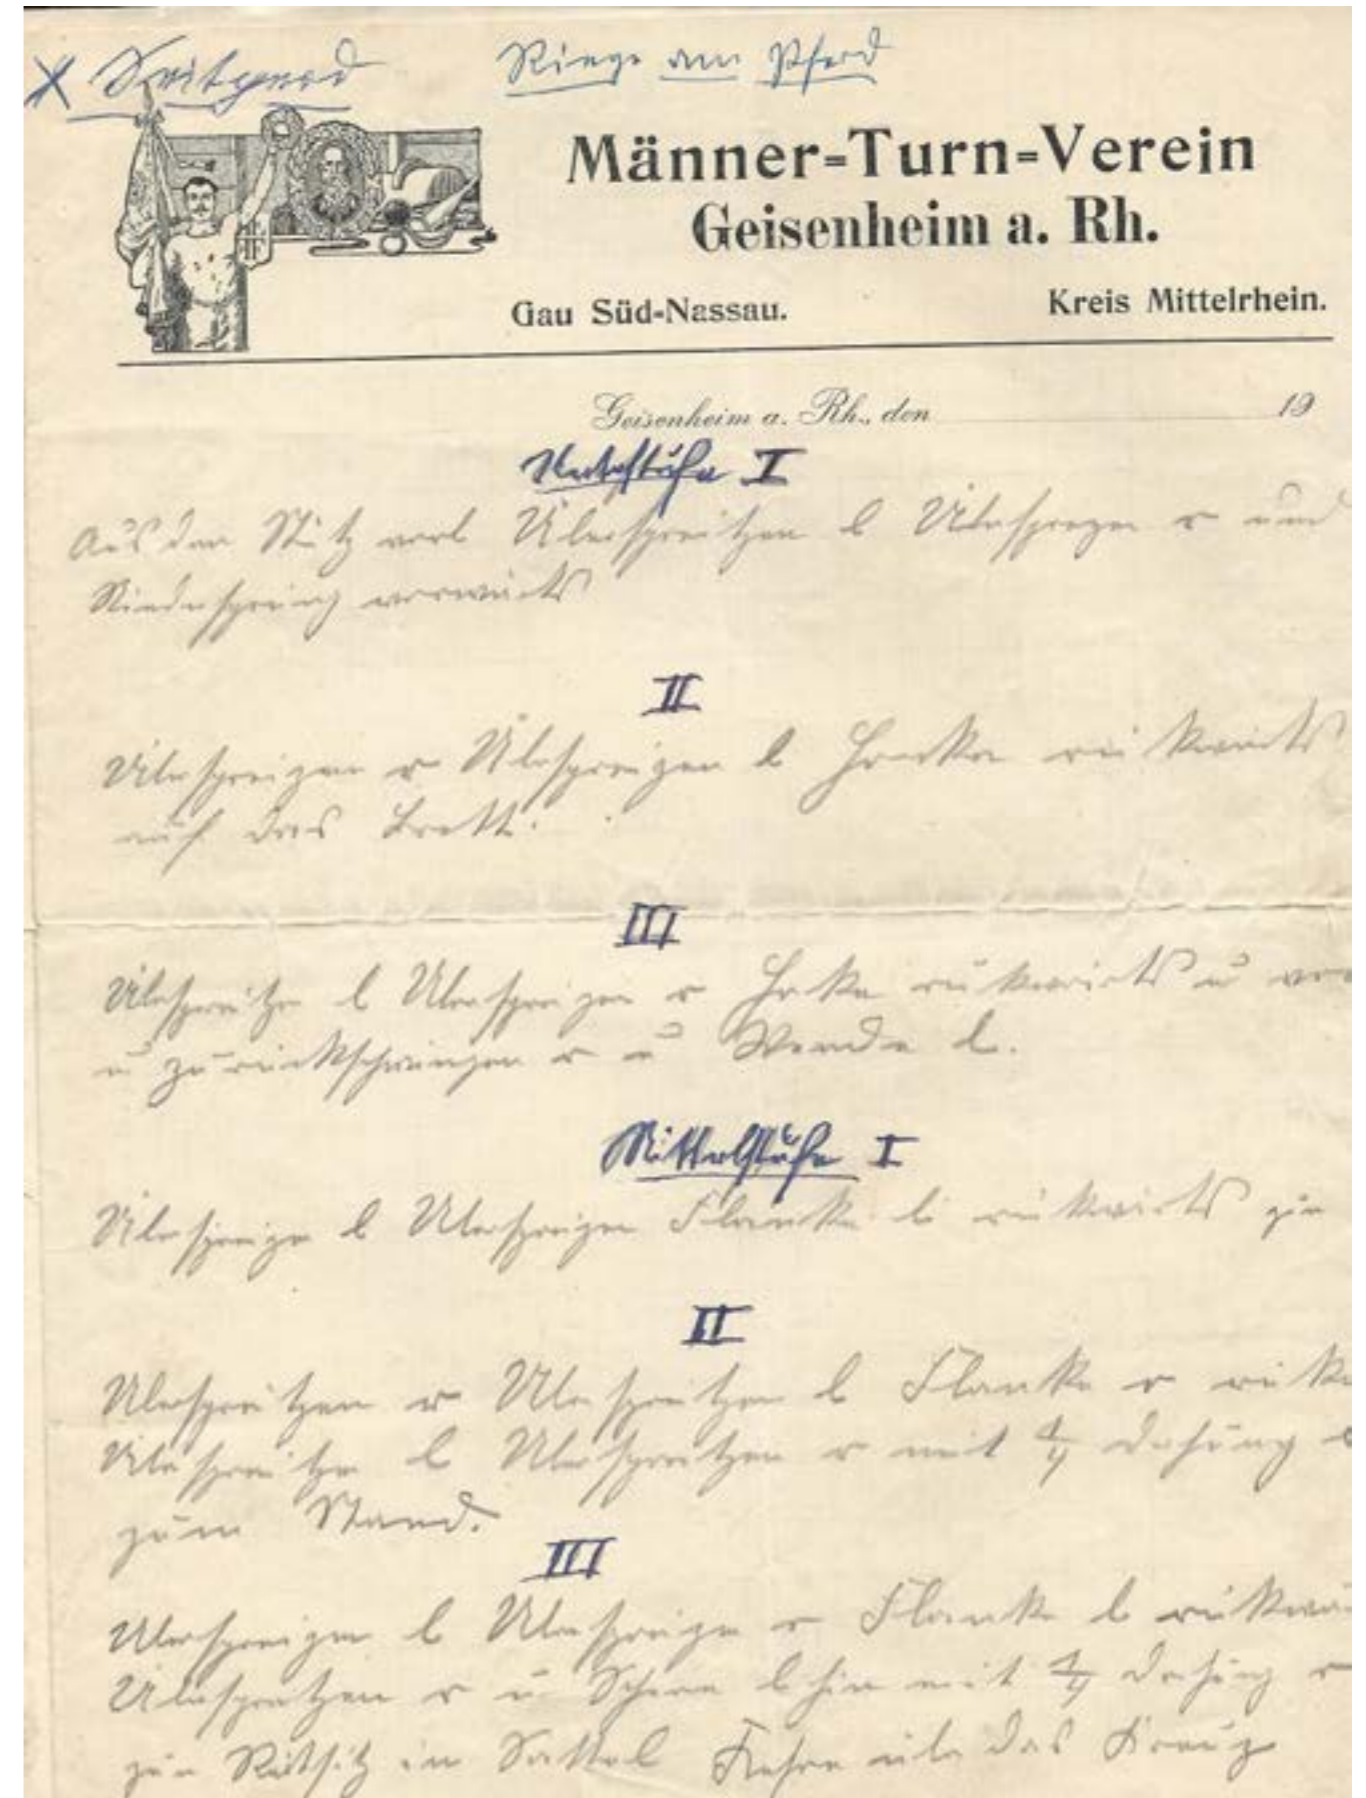 X Seitpferd Riege am Pferd
Männer-Turn-Verein
Geisenheim a. Rh.
Gau Süd-Nassau.
Kreis Mittelrhein.
Geisenheim a. Rh., den 19
Unterstufe I
Aus den Stütz vorl Überspreitzen l Überspreizen r und
Niedersprung vorwärts
II
Überspreizen r Überspreizen l Hocke rükwärts
auf das Brett.
III
Überspreitze l Überspreizen r Hocke rükwärts u vor
u zurückschwingen r u Wende l.
Mittelstufe I
Überspreize l Überspreizen Flanke li rükwärts zur
II
Überspreitzen r Überspreitzen l Flanke r rükw
Überspreitze l Überspreitzen r mit 1/4 drehung
zum Stand.
III
Überspreizen l Überspreize r Flanke l rükwär
Überspreitzen r u Schere l hin mit 1/4 drehung r
zum Reitsitz im Sattel Kehre über das Kreuz